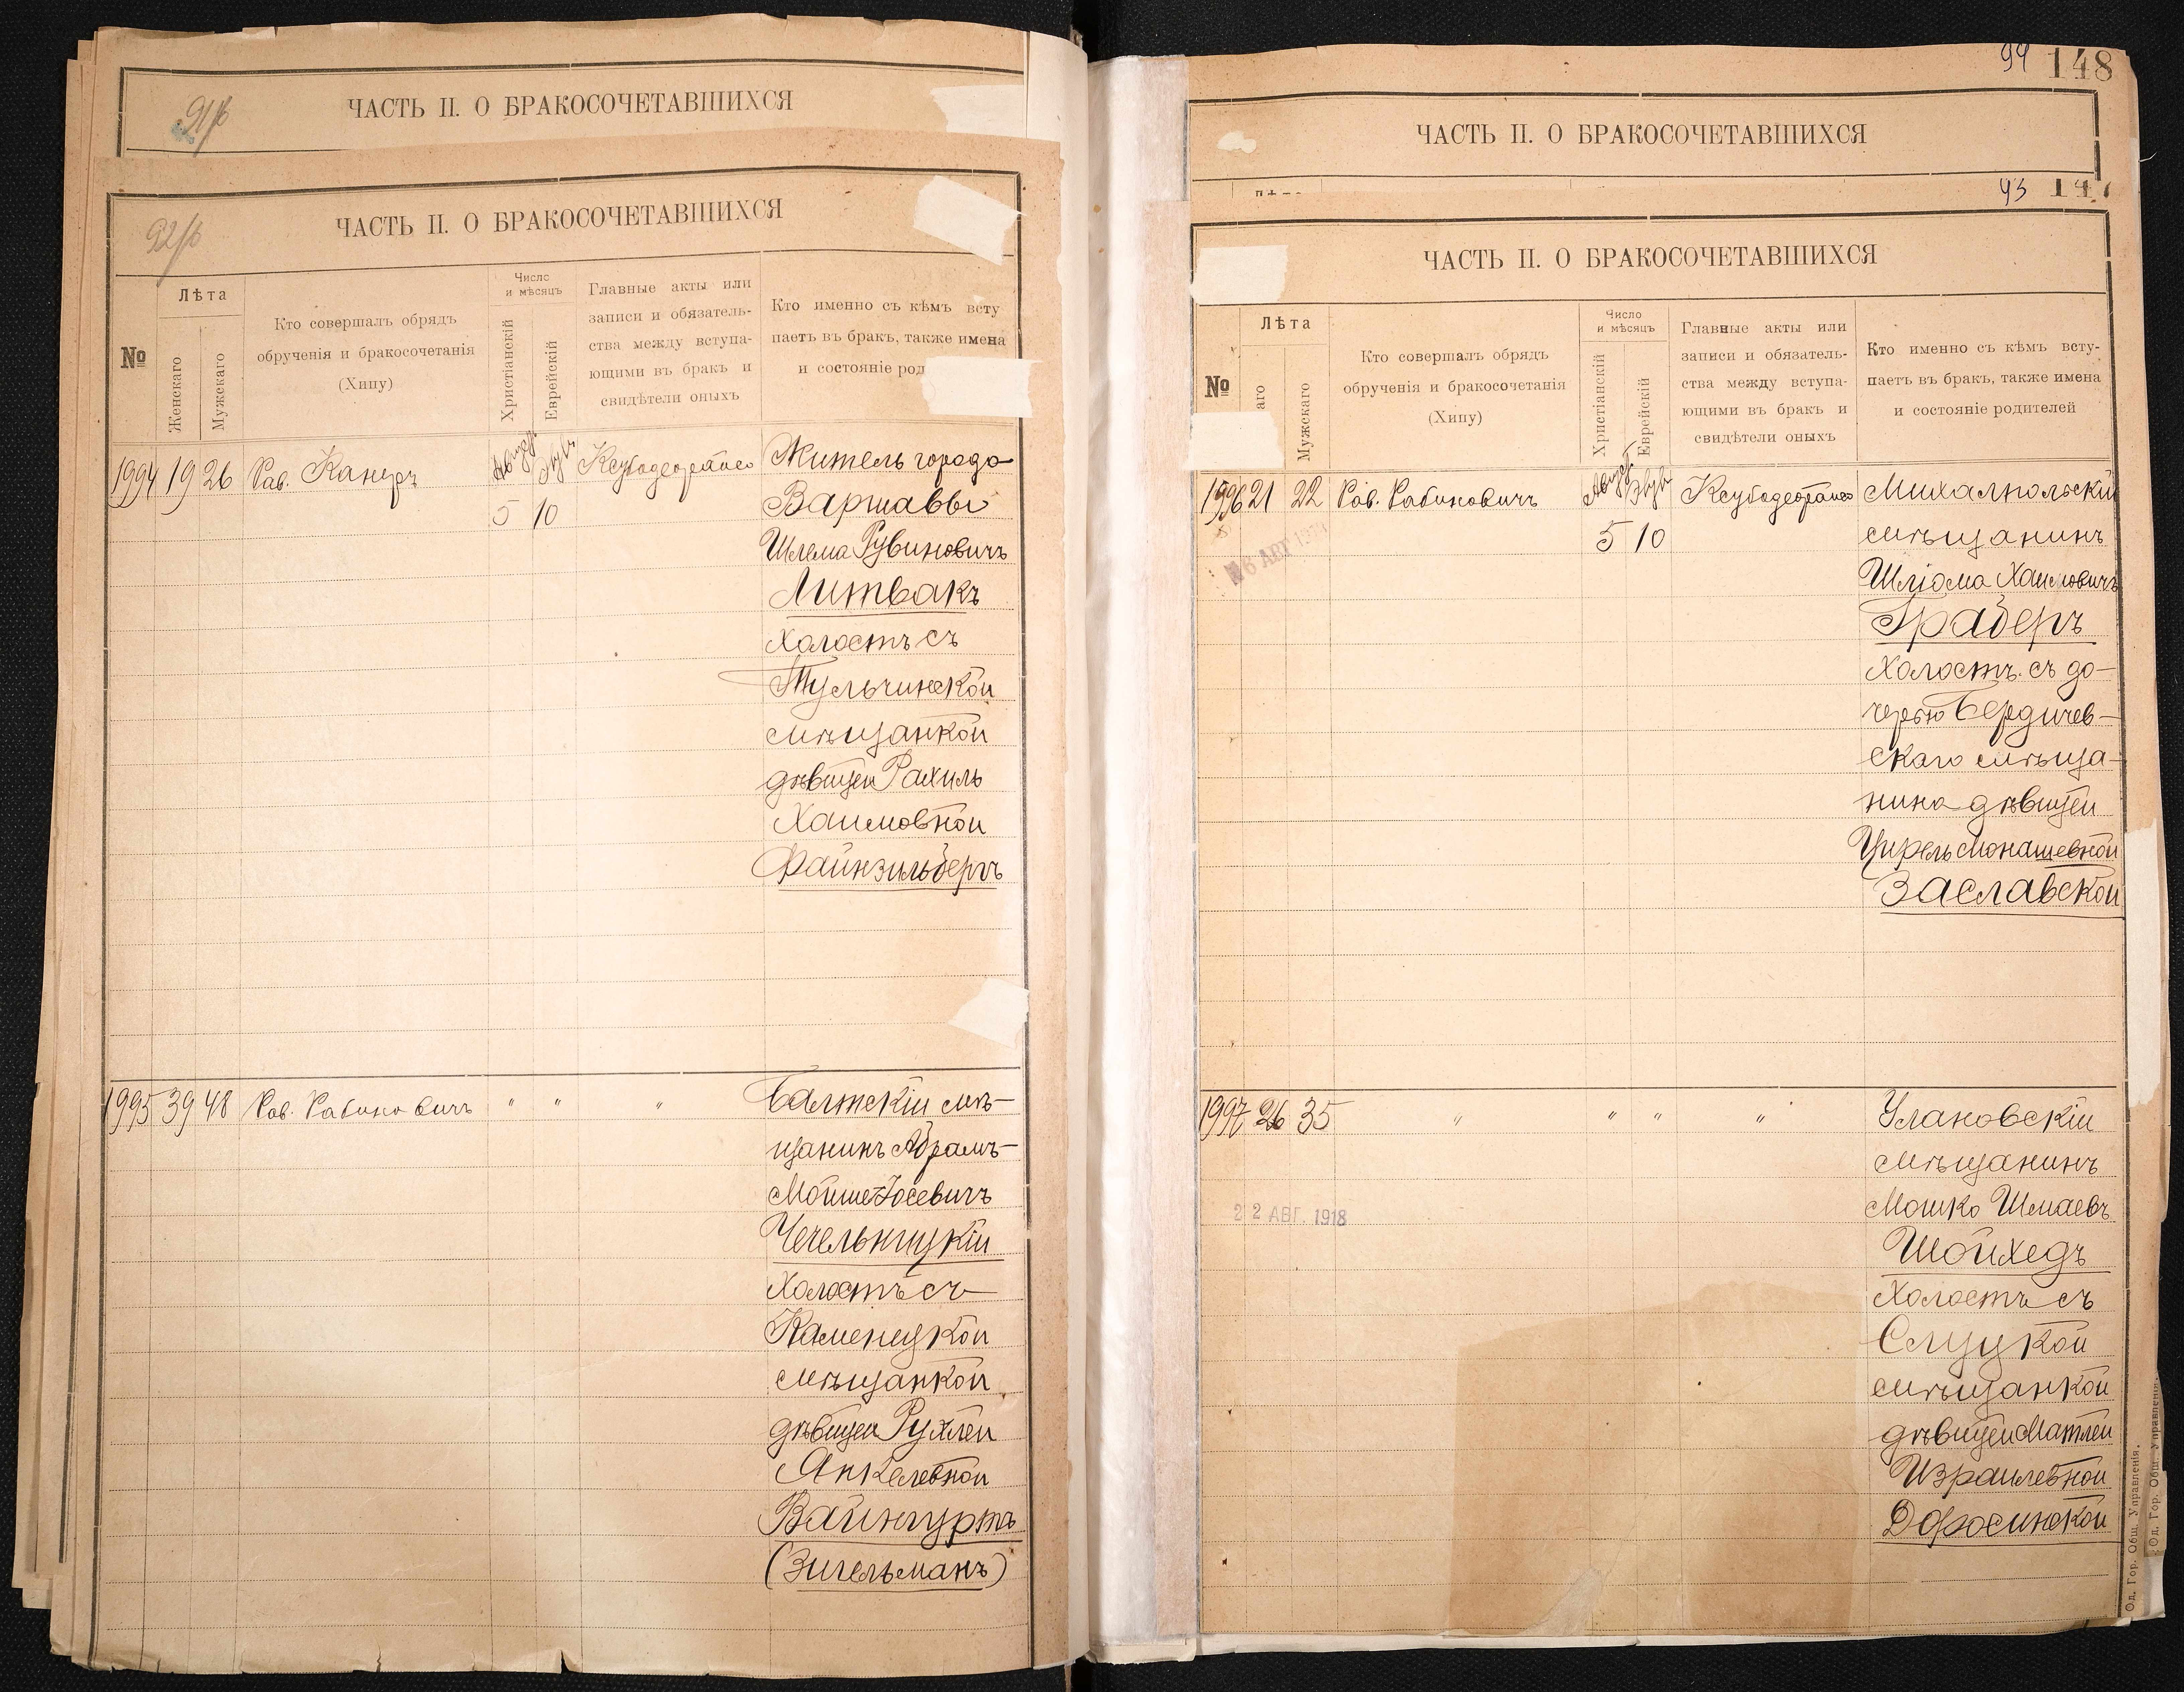 91/б
ЧАСТЬ II. О БРАКОСОЧЕТАВШИХСЯ
92/б
ЧАСТЬ II. О БРАКОСОЧЕТАВШИХСЯ
№
Лѣта
Женскаго
Мужскаго
Кто совершалъ обрядъ
обрученія и бракосочетанія
(Хипу)
Число
и мѣсяцъ
Христіанскій
Еврейскій
Главные акты или
записи и обязатель-
ства между вступа-
ющими въ бракъ и
свидѣтели оныхъ
Кто именно съ кѣмъ всту
паетъ въ бракъ, также имена
и состояніе род
1994 19 26 Рав. Канеръ
5 10
Житель города
Варшавы
Шлема Рувиновичъ
Литвакъ
холостъ съ
Тульчинской
мѣщанкой
дѣвицей Рахиль
Хаимовной
Файнзильбергъ
1995 39 48 Рав. Рабиновичъ " " "
Балтскій мѣ-
щанинъ Абрамъ-
Мойше Іосевичъ
Чечельницкій
холостъ съ
Каменецкой
мѣщанкой
дѣвицей Рухлей
Анкелевной
Вайнгуртъ
(Зигельманъ)
94 148
ЧАСТЬ II. О БРАКОСОЧЕТАВШИХСЯ
93 147
ЧАСТЬ II. О БРАКОСОЧЕТАВШИХСЯ
№
Лѣта
аго
Мужскаго
Кто совершалъ обрядъ
обрученія и бракосочетанія
(Хипу)
Число
и мѣсяцъ
Христіанскій
Еврейскій
Главные акты или
записи и обязатель-
ства между вступа-
ющими въ бракъ и
свидѣтели оныхъ
Кто именно съ кѣмъ всту-
паетъ въ бракъ, также имена
и состояніе родителей
1996 21 22 Рав. Рабиновичъ
5 10
Михалпольскій
мѣщанинъ
Шліома Хаимовичъ
Граберъ
холостъ съ до-
черью Бердичев-
скаго мѣща-
нина дѣвицей
Цирель Монашевной
Заславской
1997 26 35 " " " "
22 АВГ. 1918
Улановскій
мѣщанинъ
Мошко Шмаевъ
Шойхедъ
холостъ съ
Слуцкой
мѣщанкой
дѣвицей Матлей
Израилевной
Доросинской
Од. Гор. Общ. Управленія.
Од. Гор. Общ. Управленія.